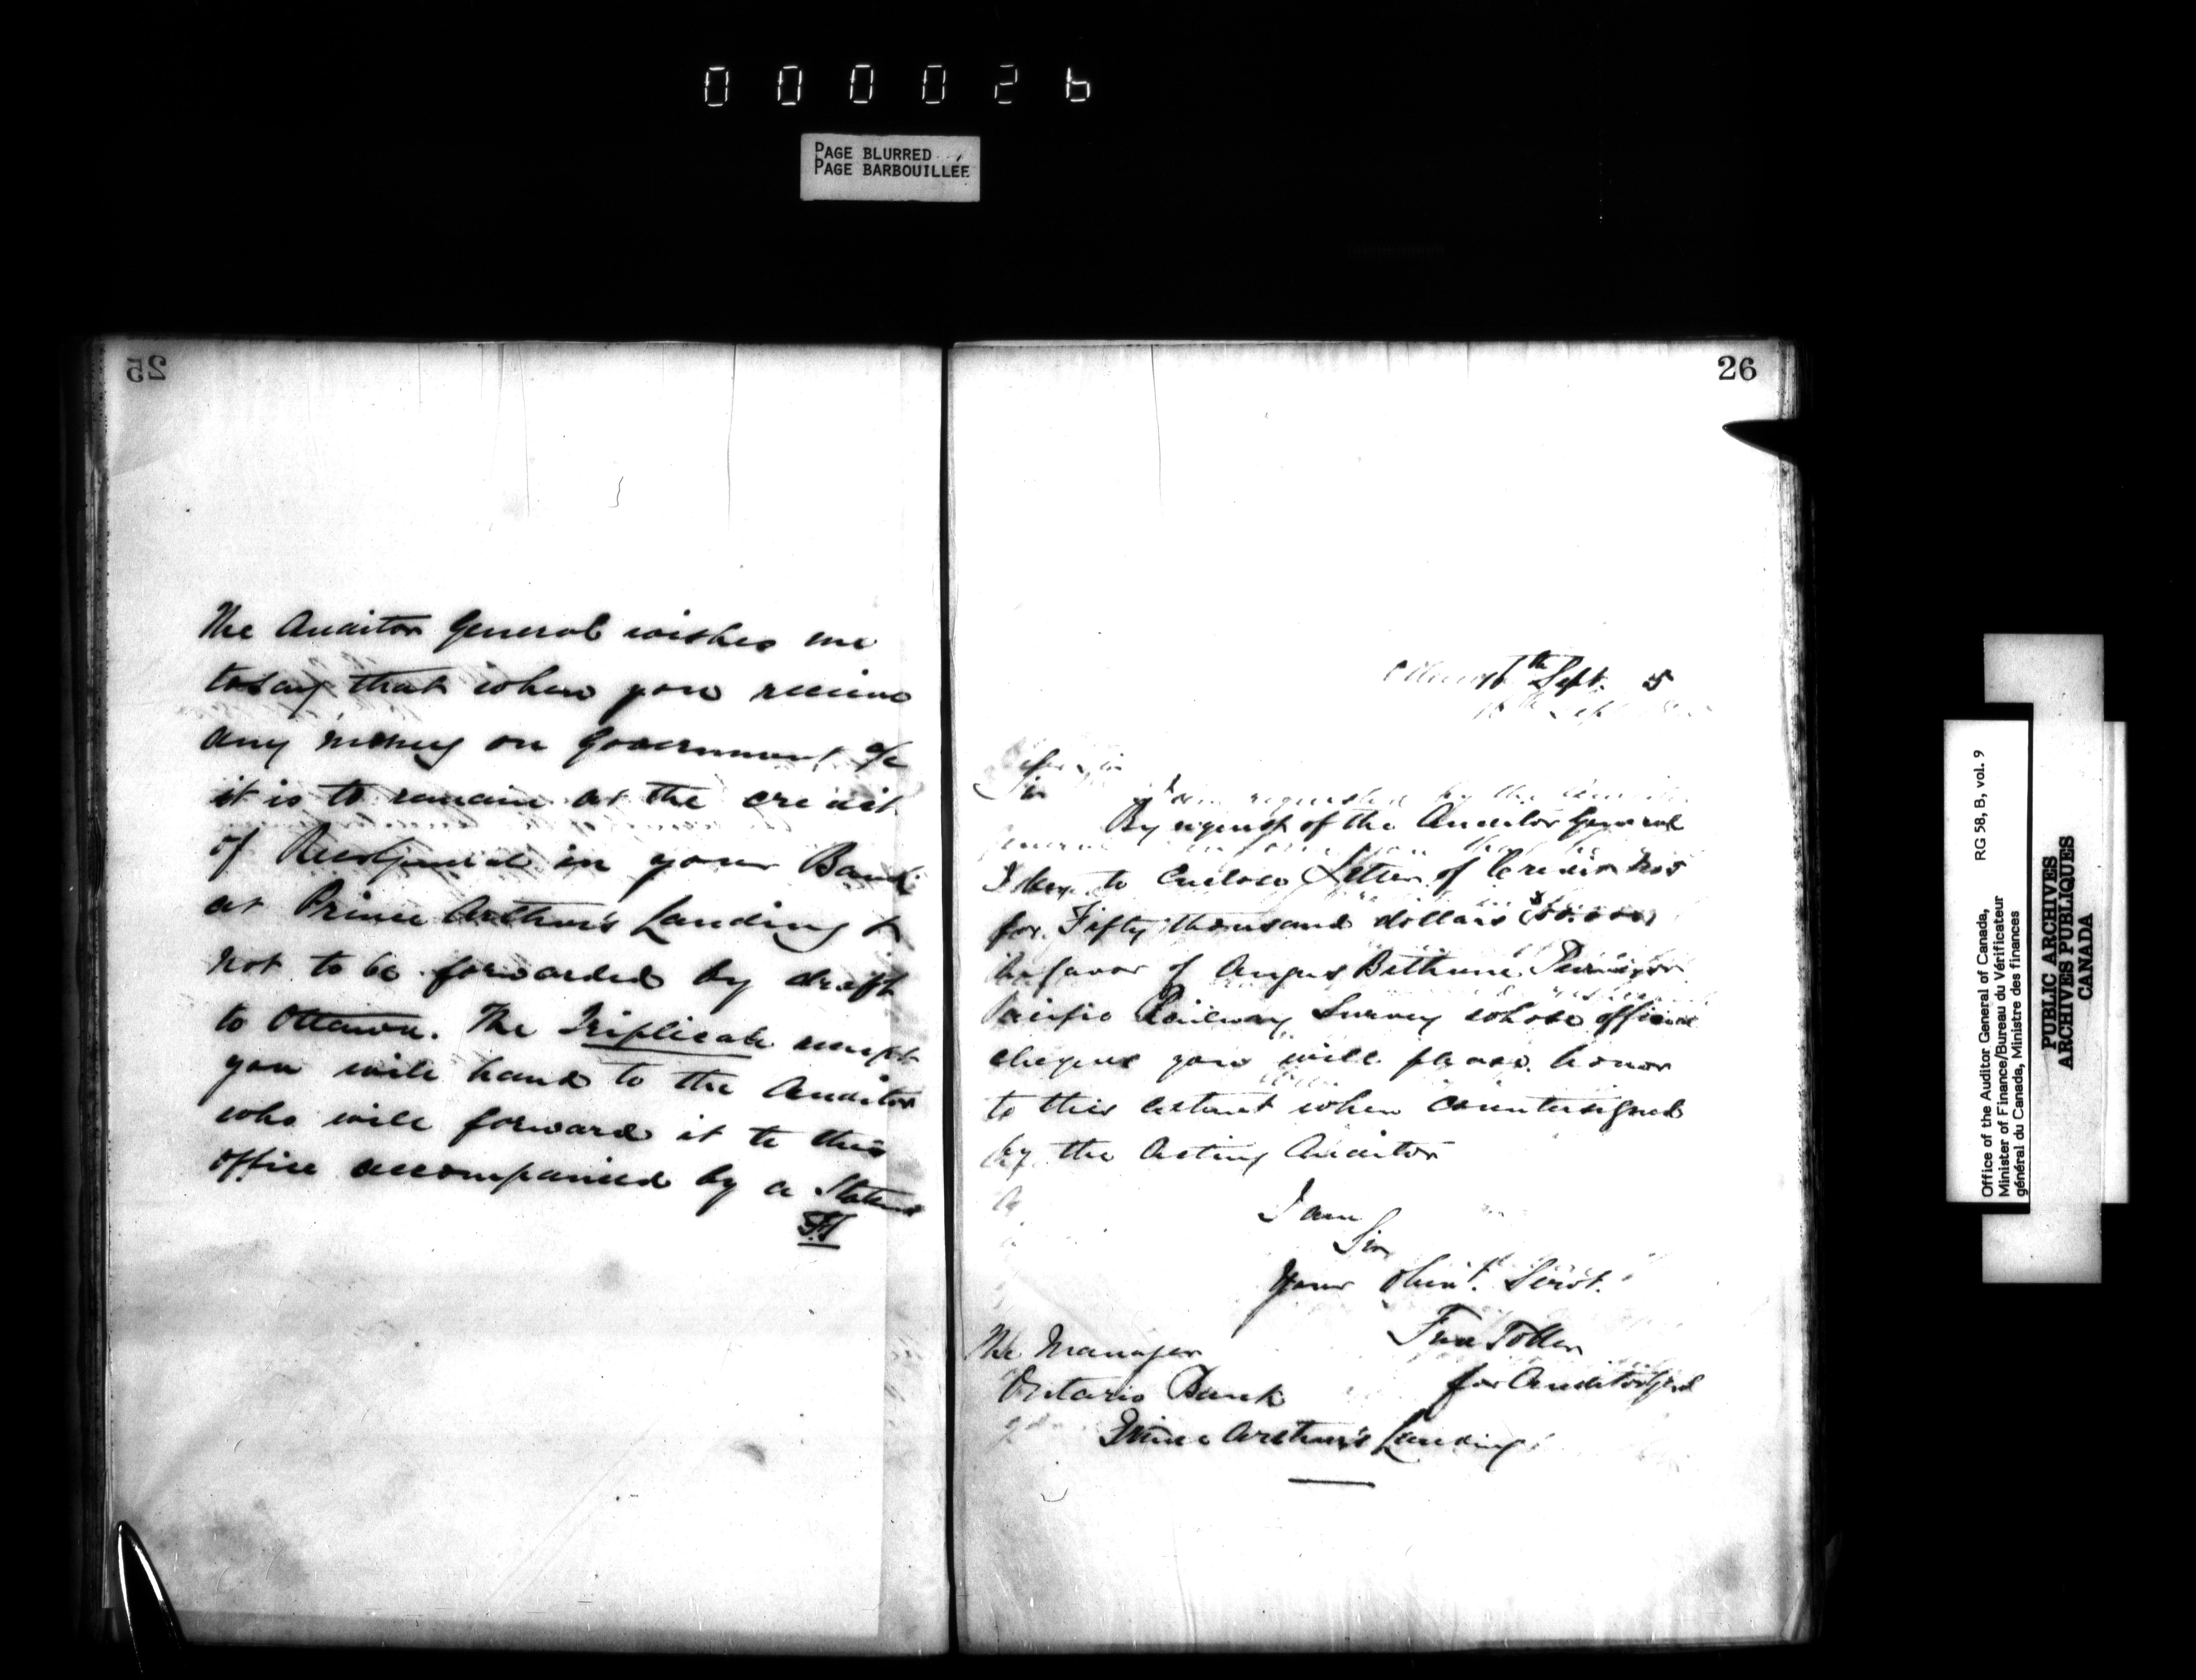 000026
PAGE BLURRED
PAGE BARBOUILLÉE
25
The Auditor General wishes me
to say that when you receive
any money on Government a/c
it is to remain at the credit
of Rec General in your Bank
at Prince Arthur's Landing &
not to be forwarded by draft
to Ottawa. The Triplicate receipt
you will hand to the Auditor
who will forward it to this
office accompanied by a Statemt
F.T
26
16th Sept. 5
Sir
By request of the Auditor General
I beg to Enclose Letter of Credit No 5
for Fifty thousand dollars
in favor of Angus Bethune
Pacific Railway Survey whose official
cheques you will please honor
to this extent when countersigned
by the Acting Auditor
I am
Sir
Your Obedt. Servt.
Fred Toller
for Auditor Genl
The Manager
Ontario Bank
Prince Arthur's Landing
Office of the Auditor General of Canada,
Minister of Finance/Bureau du Vérificateur
général du Canada, Ministre des finances
RG 58, B, vol. 9
PUBLIC ARCHIVES
ARCHIVES PUBLIQUES
CANADA